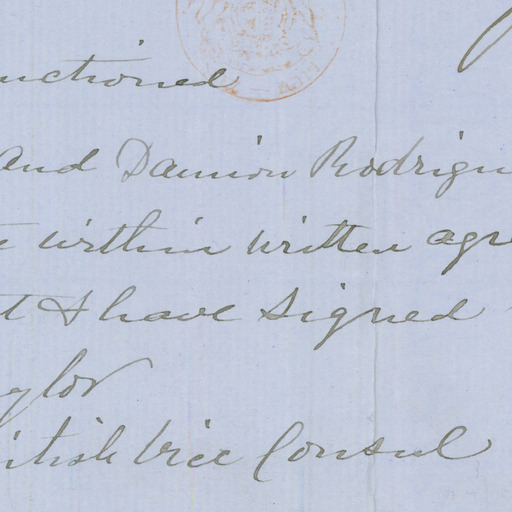 nctioned
and Damion Rodrigu
within written agre
t & have signed
ylor
itish Vice Consul